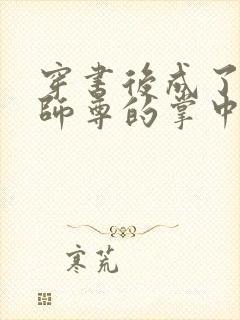 穿書後成了
師尊的掌中
寒荒